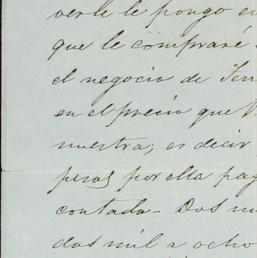 verle le pongo en
que le compraré
el negocio de Terr
en el precio que V.
nuestra; es decir
pesos por ella pag
contado - Dos m
dos mil a ocho